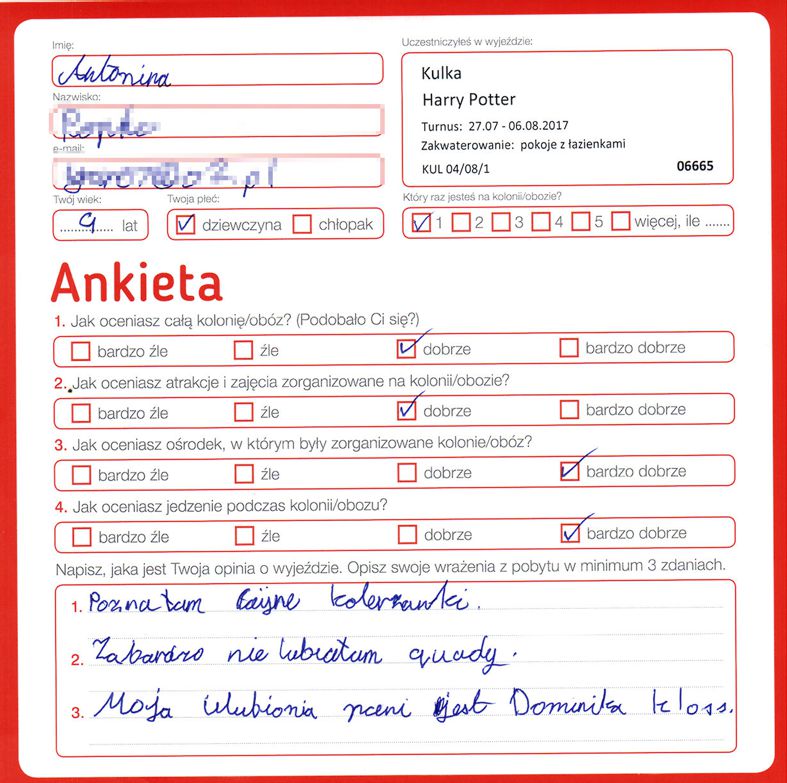 Imię:
Antonina
Nazwisko:
e-mail:
Twój wiek:
9 lat
Twoja płeć:
dziewczyna chłopak
Uczestniczyłeś w wyjeździe:
Kulka
Harry Potter
Turnus: 27.07 - 06.08.2017
Zakwaterowanie: pokoje z łazienkami
KUL 04/08/1 06665
Który raz jesteś na kolonii/obozie?
1 2 3 4 5 więcej, ile .......
Ankieta
1. Jak oceniasz całą kolonię/obóz? (Podobało Ci się?)
bardzo źle źle dobrze bardzo dobrze
2. Jak oceniasz atrakcje i zajęcia zorganizowane na kolonii/obozie?
bardzo źle źle dobrze bardzo dobrze
3. Jak oceniasz ośrodek, w którym były zorganizowane kolonie/obóz?
bardzo źle źle dobrze bardzo dobrze
4. Jak oceniasz jedzenie podczas kolonii/obozu?
bardzo źle źle dobrze bardzo dobrze
Napisz, jaka jest Twoja opinia o wyjeździe. Opisz swoje wrażenia z pobytu w minimum 3 zdaniach.
1. Poznatam fajne kolerzanki.
2. Zabardzo nie lubiatam quady.
3. Moja ulubionia pani jest Dominika kloss.